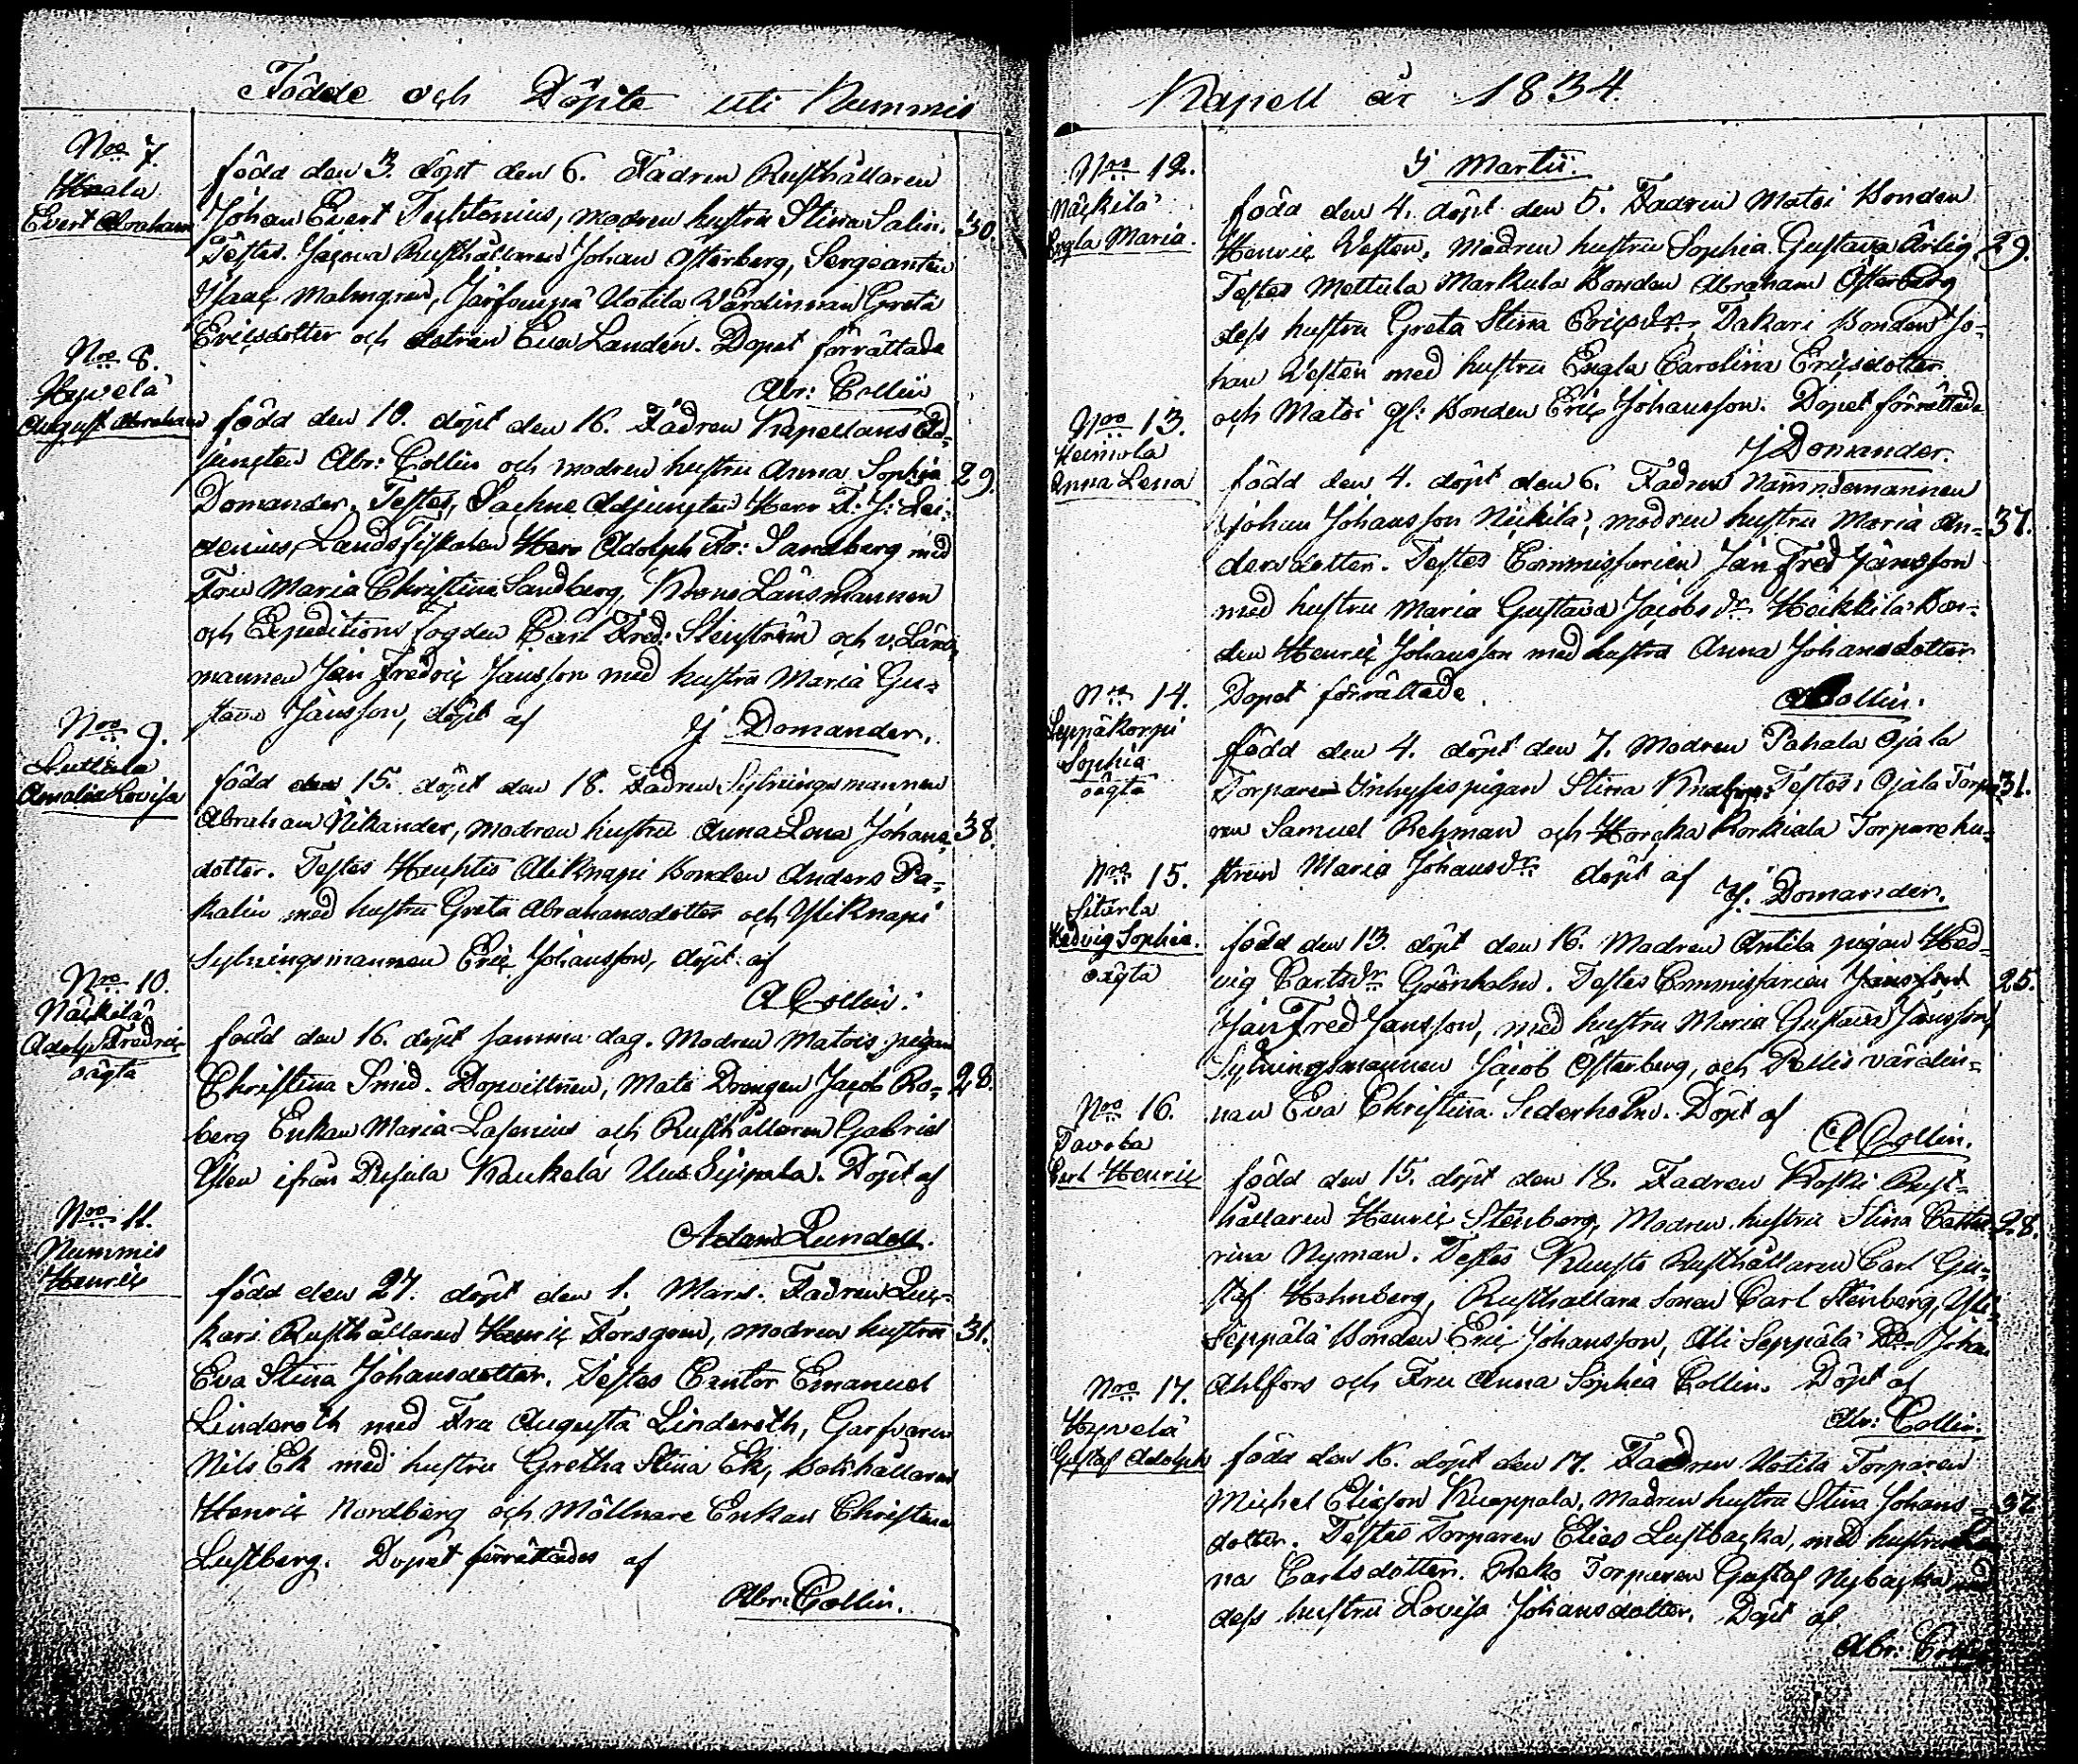 Födde och Döpte uti Nummis
Noo 7.
Evert Abraham
född den 3. döpt den 6. Fadren Rusthållaren
Johan Evert Techtonius, modren hustru Stina Salin. 30.
Testes. Rusthållaren Johan Österberg, Sergeanten
Isaac Malmgren, Uotila Värdinnan Greta
Ericsdotter och dotren Eva Landén. Dopet förrättade
Abr: Collin
Noo 8.
Hyvelä
August Abraham
född den 10. döpt den 16. Fadren Kapellans Ad-
juncten Abr: Collin och modren hustru Anna Sophia 29.
Domander. Testes, Adjuncten Herr
LandsFiskalen Herr Adolph Fr: Sandberg med
Fru Maria Christina Sandberg, Krono Länsmannen
och Expeditions Fogden Carl Fred: Stenström och v. Läns-
mannen Jan Fredric Jansson med hustru Maria Gu-
stava Jansson, döpt af J. Domander.
Noo 9.
Amalia Lovisa
född den 15. döpt den 18. Fadren Sylningsmannen
Abraham Nikander, modren hustru Anna Lena Johans- 38.
dotter. Testes Huhtis Aliknapi Bonden Anders Pa-
kalin med hustru Greta Abrahamsdotter och Yliknapi
Sylningsmannen Eric Johansson, döpt af
A Collin.
Noo 10.
Näckilä
Adolph Fredric
oägta
född den 16. döpt samma dag. Modren Matois pigan
Christina Smid. Dopvittnen, Mati Drengen Jacob Ro- 28.
berg Enkan Maria Lasenius och Rusthållaren Gabriel
ifrån Kaukela Döpt af
Adam Lundell.
Noo 11.
Nummis
Henric
född den 27. döpt den 1. Mars. Fadren
kari Rusthållaren Henric Forsgren, modren hustru 31.
Eva Stina Johansdotter. Testes Cantor Emanuel
Linderoth med Fru Augusta Linderoth, Garfvaren
Nils Ek med hustru Gretha Stina Ek, Bolhållaren
Henric Nordberg och Möllnare Enkan Christina
Lustberg. Dopet förrättades af
Abr: Collin.
Kapell år 1834.
I Martii.
Noo 12.
Näckilä
Engla Maria.
född den 4. döpt den 5. Fadren Matoi Bonden
Henric Vesten, Modren hustru Sophia Gustava Ärlig. 29.
Testes Mettula Markula Bonden Abraham Österberg
dess hustru Greta Stina Ericsdr., Takari Bonden Jo-
han Vesten med hustru Engla Carolina Ericsdotter
och Matoi gl: Bonden Eric Johansson. Dopet förrättade
J Domander.
Noo 13.
Heimola
Anna Lena
född den 4. döpt den 6. Fadren Nämndemannen
Johan Johansson Näckilä, modren hustru Maria An- 37.
dersdotter. Testes Commissarien Jan Fred Jansson
med hustru Maria Gustava Jacobsdr. Heikkilä Bon-
den Henric Johansson med hustru Anna Johansdotter
Dopet förrättade A Collin.
Noo 14.
Leppäkorpi
Sophia
oägta
född den 4. döpt den 7. Modren Pahala Ojala
Torpare Inhyses pigan Stina Testes: Ojala Torpa- 31.
ren Samuel Rehman och Korkiala Torpare hu-
strun Maria Johansdr. döpt af J. Domander.
Noo 15.
Sitarla
Hedvig Sophia.
oägta
född den 13. döpt den 16. Modren Antila pigan Hed-
vig Carlsdr. Grönholm. Testes Commissarien 25.
Jan Fred Jansson, med hustru Maria Gustava Jansson,
Sylningsmannen Jacob Österberg, och Pellis värdin-
nan Eva Christina Sederholm. Döpt af
A Collin.
Noo 16.
Tavola
Carl Henric
född den 15. döpt den 18. Fadren Koski Rust-
hållaren Henric Stenberg, Modren hustru Stina Catha- 28.
rina Nyman. Testes Rusthållaren Carl Gu-
staf Holmberg, Rusthållare Sonen Carl Stenberg, Yli-
Seppälä Bonden Eric Johansson, Ali Seppälä Do Johan
Ahlfors och Fru Anna Sophia Collin. Döpt af
Abr: Collin.
Noo 17.
Hyvelä
Gustaf Adolph
född den 16. döpt den 17. Fadren Uotila Torparen
Michel Eliasson Kuoppala, Modren hustru Stina Johans- 37
dotter. Testes Torparen Elias Lustbacka, med hustru
na Carlsdotter. Torparen Gustaf Nybacka med
dess hustru Lovisa Johansdotter. Döpt af
Abr: Collin